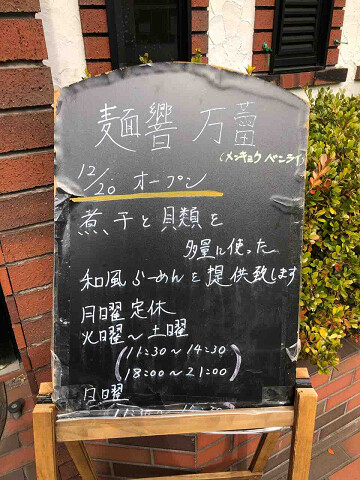 麺響 万蕾
(メンキョウ バンライ)
12/20 オープン
煮干と貝類を
多量に使った
和風らーめんを提供致します
月曜定休
火曜〜土曜
(11:30〜14:30
18:00〜21:00)
日曜